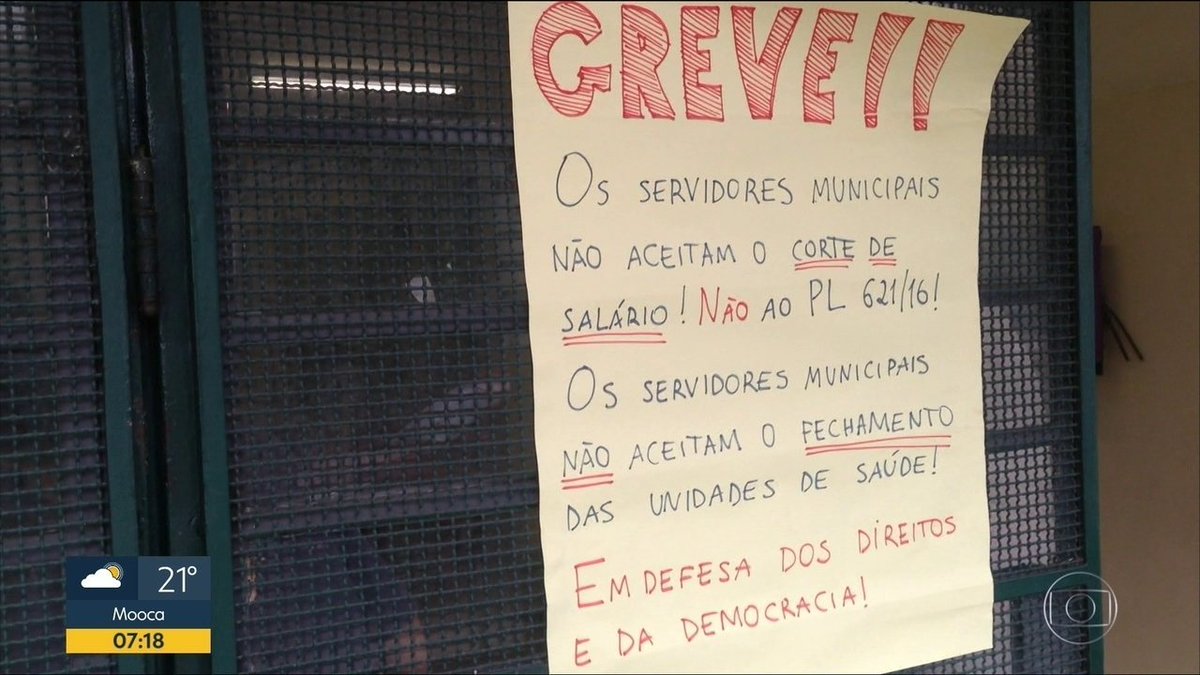 GREVE!!
OS SERVIDORES MUNICIPAIS
NÃO ACEITAM O CORTE DE
SALÁRIO! NÃO AO PL 621/16!
OS SERVIDORES MUNICIPAIS
NÃO ACEITAM O FECHAMENTO
DAS UNIDADES DE SAÚDE!
EM DEFESA DOS DIREITOS
E DA DEMOCRACIA!
21°
Mooca
07:18